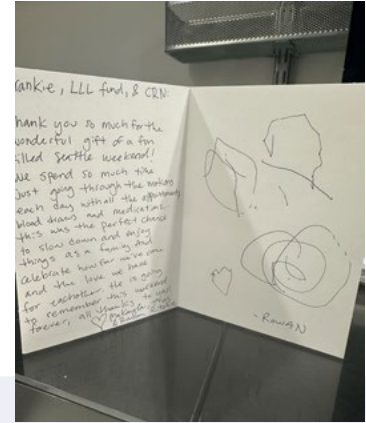 ankie, LLL fund, & CRN:
hank you so much for the
wonderful gift of a fun
illed Seattle weekend!
We spend so much time
just going through the motions
each day with all the appointments,
blood draws and medications
this was the perfect chance
to slow down and enjoy
things as a family and
celebrate how far we've come
and the love we have
for eachother. He is going
to remember this weekend
forever, all thanks to you!
- ROWAN